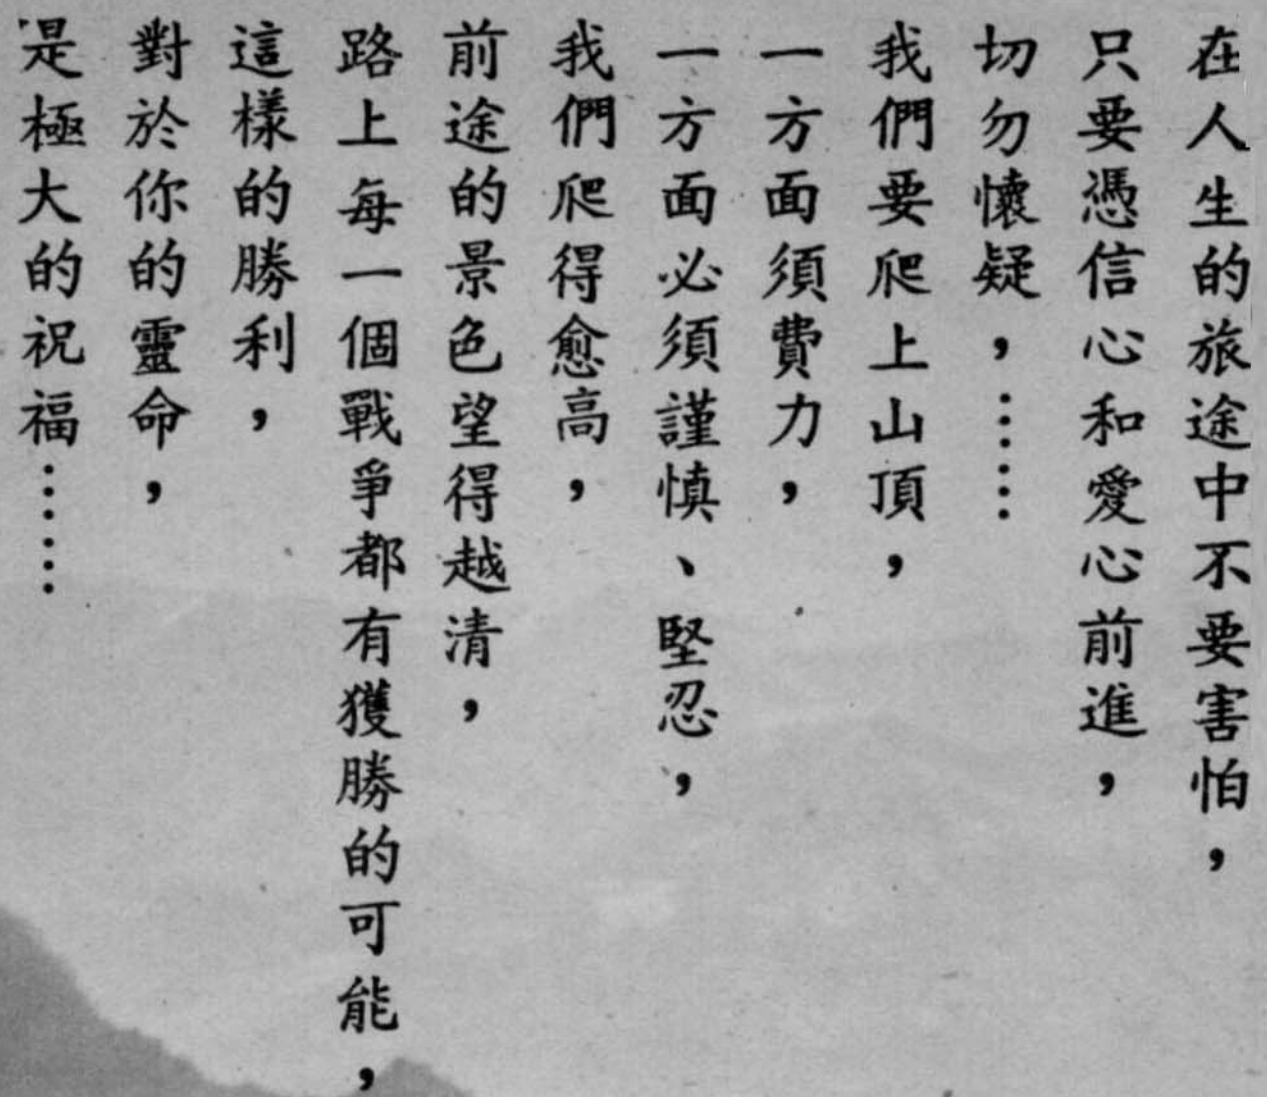 在人生的旅途中不要害怕，
只要憑信心和愛心前進，
切勿懷疑，……
我們要爬上山頂，
一方面須費力，
一方面必須謹慎、堅忍，
我們爬得愈高，
前途的景色望得越清，
路上每一個戰爭都有獲勝的可能，
這樣的勝利，
對於你的靈命，
是極大的祝福……